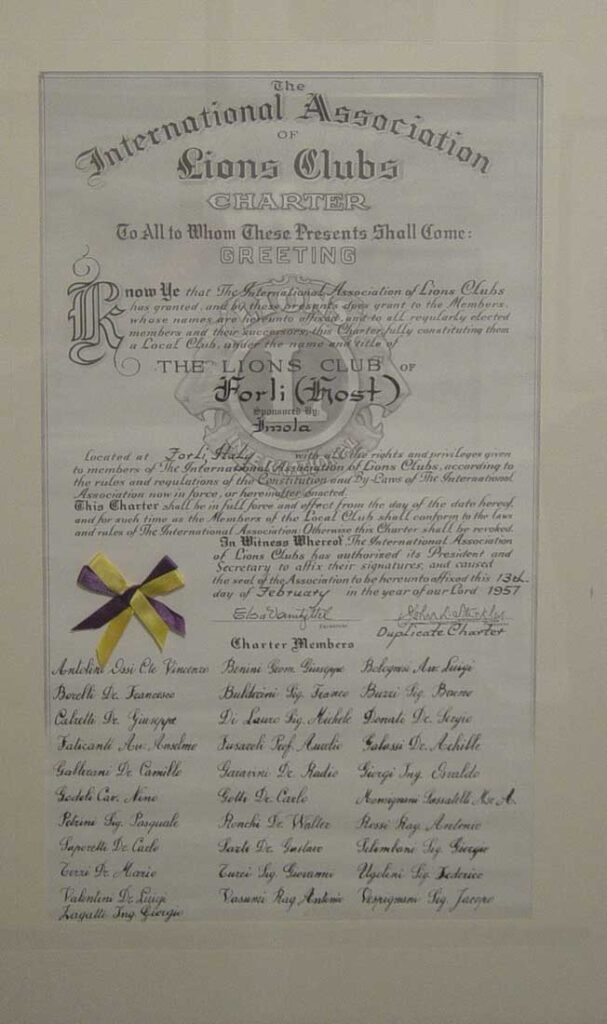 The
International Association
OF
Lions Clubs
CHARTER
To All to Whom These Presents Shall Come:
GREETING
Know Ye that The International Association of Lions Clubs
has granted, and by these presents does grant to the Members,
whose names are hereunto affixed, and to all regularly elected
members and their successors, this Charter fully constituting them
a Local Club, under the name and title of
THE LIONS CLUB OF
Forli (Host)
Sponsored By:
Imola
Located at Forli, Italy with all the rights and privileges given
to members of The International Association of Lions Clubs, according to
the rules and regulations of the Constitution and By-Laws of The International
Association now in force, or hereinafter enacted.
This Charter shall be in full force and effect from the day of the date hereof,
and for such time as the Members of the Local Club shall conform to the laws
and rules of The International Association. Otherwise this Charter shall be revoked.
In Witness Whereof, The International Association
of Lions Clubs has authorized its President and
Secretary to affix their signatures, and caused
the seal of the Association to be hereunto affixed this 13th
day of February in the year of our Lord 1957
Duplicate Charter
Charter Members
Antolini Ossi Cte Vincenzo Benini Geom. Giuseppe Bolognesi Av. Luigi
Borelli Dr. Francesco Balderini Sig. Franco Buzzi Sig.
Calzetti Dr. Giuseppe Di Lauro Sig. Michele Donati Dr. Sergio
Faticanti Av. Anselmo Fusaroli Prof. Aurelio Galassi Dr. Achille
Galterani Dr. Camillo Garavini Dr. Radio Giorgi Ing. Osvaldo
Godoli Cav. Nino Gotti Dr. Carlo Monsignani Sassatelli A.
Petrini Sig. Pasquale Ronchi Dr. Walter Rossi Rag. Antonio
Saporetti Dr. Carlo Sarti Dr. Gustavo Selimbani Sig. Giorgio
Terzi Dr. Mario Turci Sig. Giovanni Ugolini Sig. Federico
Valentini Dr. Luigi Vasumi Rag. Antonio Vespignani Sig. Jacopo
Zagatti Ing. Giorgio